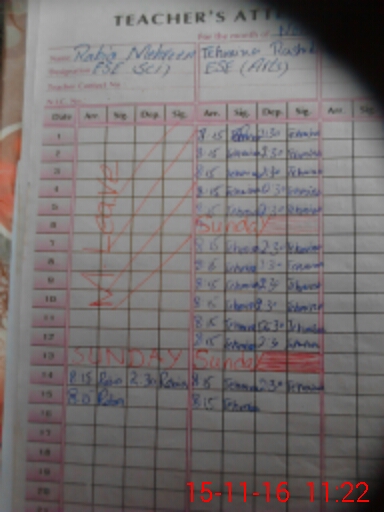 TEACHER'S ATT
For the month of
Name Rabia Meheen Tehmina Rashid
Designation ESE (Sci) ESE (Arts)
Teacher Contact No
N.I.C. No.
Date Arr. Sig. Dep. Sig. Arr. Sig. Dep. Sig. Arr. Sig.
1 8.15 2.30 Tehmina
2 8.15 Tehmina 2.30 Tehmina
3 8.15 Tehmina 2.30 Tehmina
4 8.15 Tehmina 2.30 Tehmina
5 8.15 Tehmina 2.30 Tehmina
6 Sunday
M. Leave
7 8.15 Tehmina 2.30 Tehmina
8 8.15 Tehmina 2.30 Tehmina
9 8.15 Tehmina 2.30 Tehmina
10 8.15 Tehmina 2.30 Tehmina
11 8.15 Tehmina 2.30 Tehmina
12 8.15 Tehmina 2.30 Tehmina
13 SUNDAY Sunday
14 8.15 Rabia 2.30 Rabia 8.15 Tehmina 2.30 Tehmina
15 8.0 Rabia 8.15 Tehmina
16
17
18
19
20
15-11-16 11:22